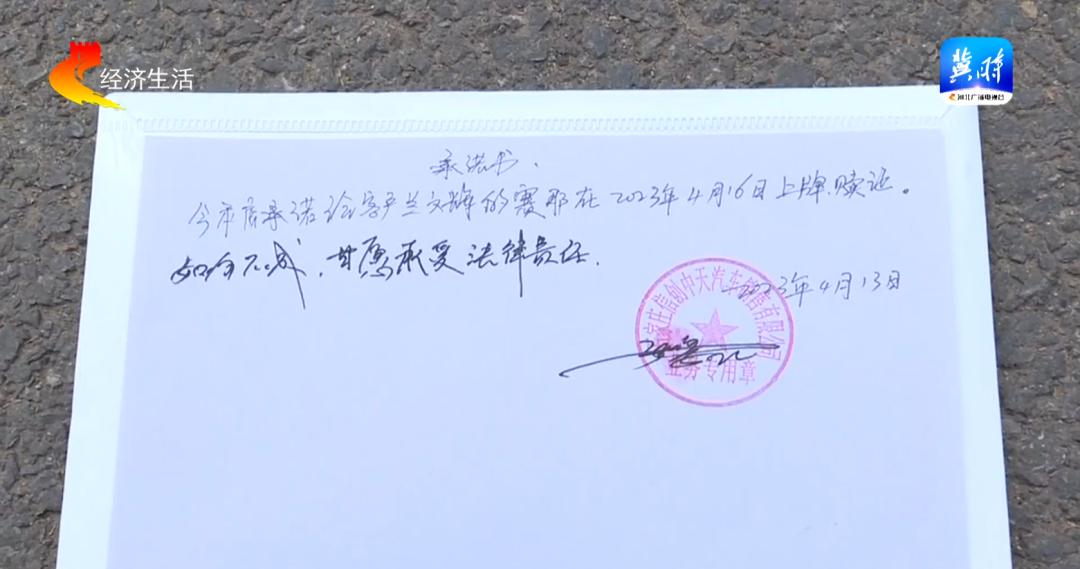 经济生活
冀时
河北广播电视台
承诺书.
今本店承诺给客户兰文锋的赛那在2023年4月16日上牌.赎证。
如合不成,甘愿承受法律责任.
2023年4月13日
家庄信创中天汽车销售有限公司
业务专用章